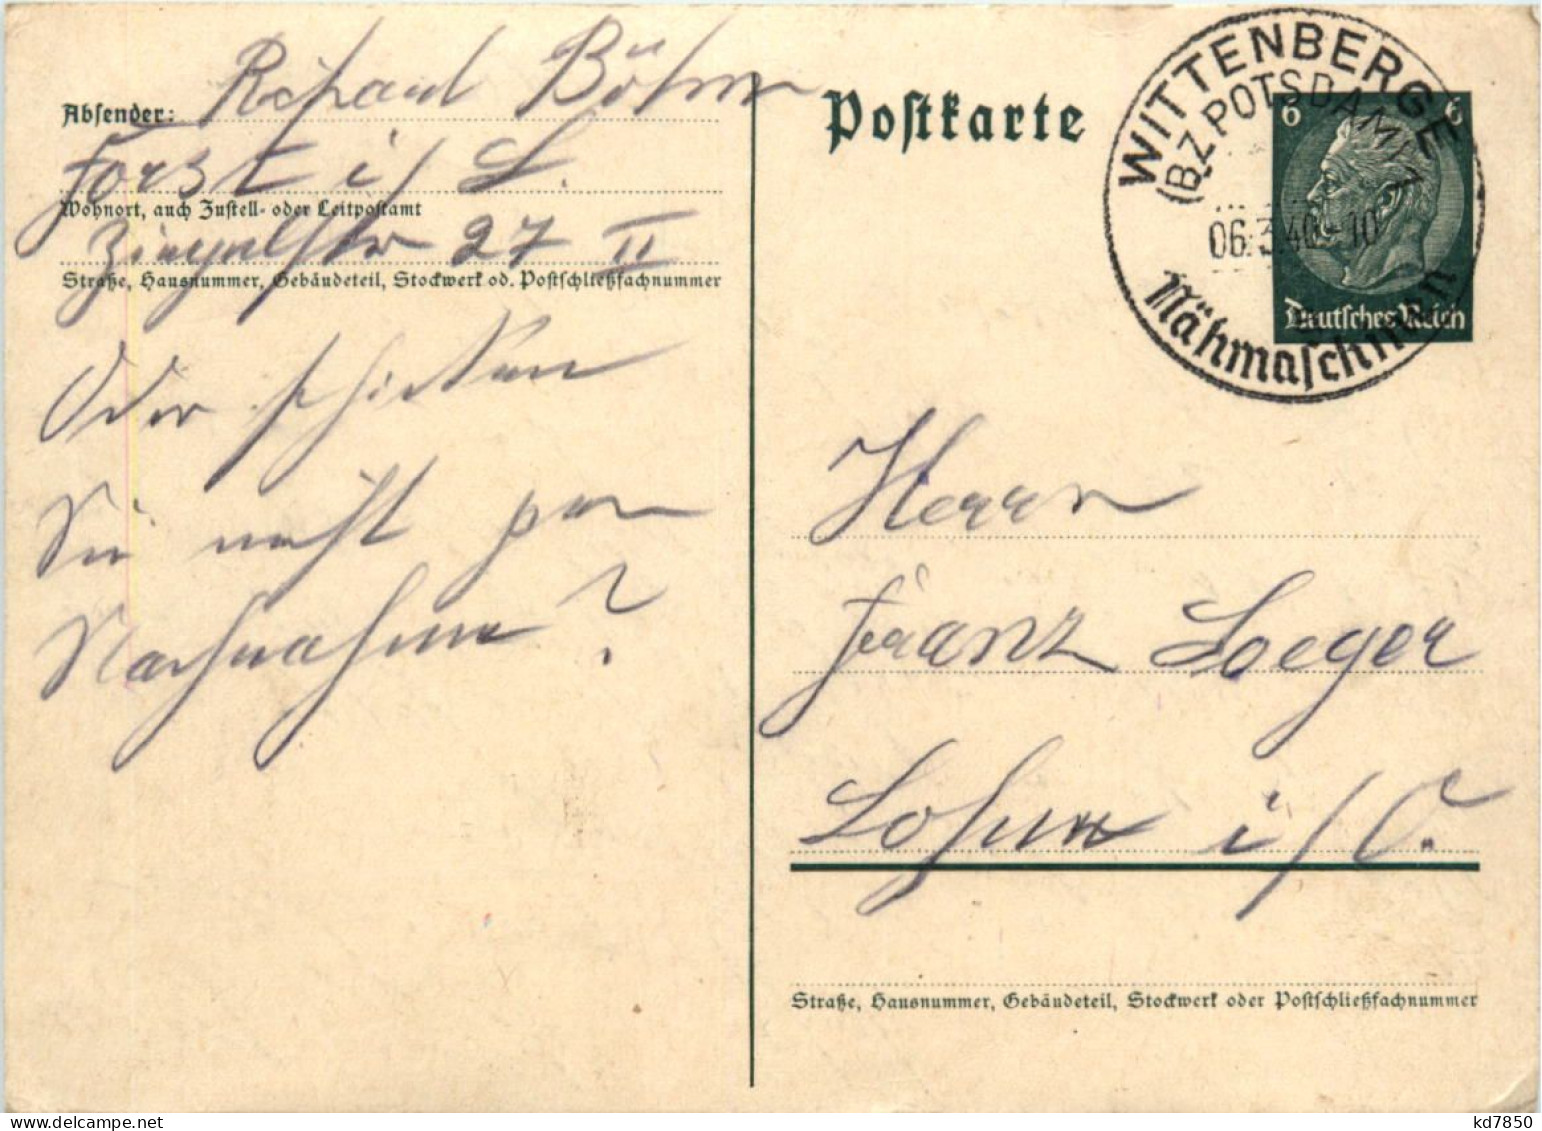 Absender: Richard Böhm
Forst i/ L.
Wohnort, auch Zustell- oder Leitpostamt
Ziegelstr 27 II
Straße, Hausnummer, Gebäudeteil, Stockwerk od. Postschließfachnummer
Oder schicken
Sie nicht per
Nachnahme?
Postkarte
WITTENBERGE
(BZ. POTSDAM) 1
06.3.40-10
Nähmaschinen
6 6
Deutsches Reich
Herrn
Franz Loeger
Lohm i/O.
Straße, Hausnummer, Gebäudeteil, Stockwerk oder Postschließfachnummer
kd7850